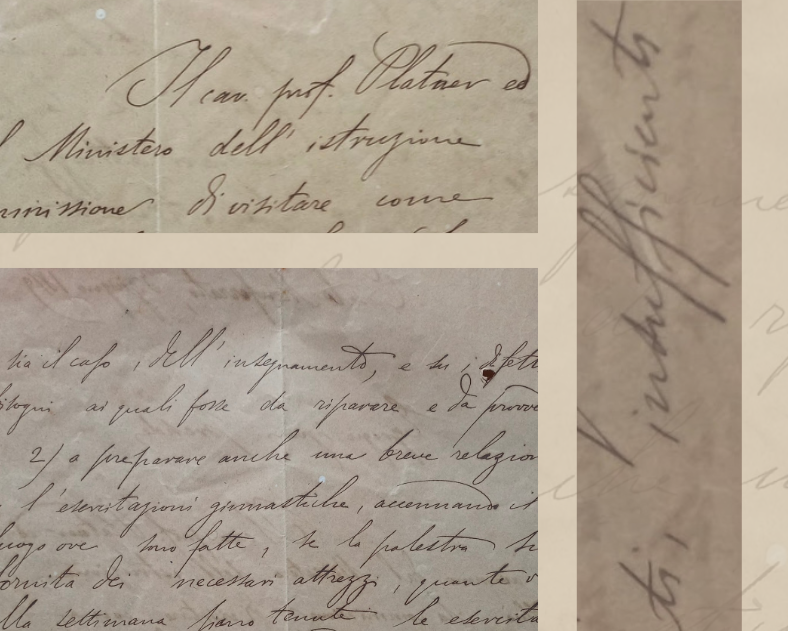 Il cav. prof. Platner ed
l Ministero dell' istruzione
missione di visitare come
sia il caso, dell' insegnamento, e su i difett
bisogni ai quali fosse da riparare e da provve
2) a preparare anche una breve relazion
l'esercitazioni ginnastiche, accennando il
luogo ove sono fatte, se la palestra si
fornita dei necessari attrezzi, quante v
lla settimana siano tenute le esercita
insufficienti
ti,